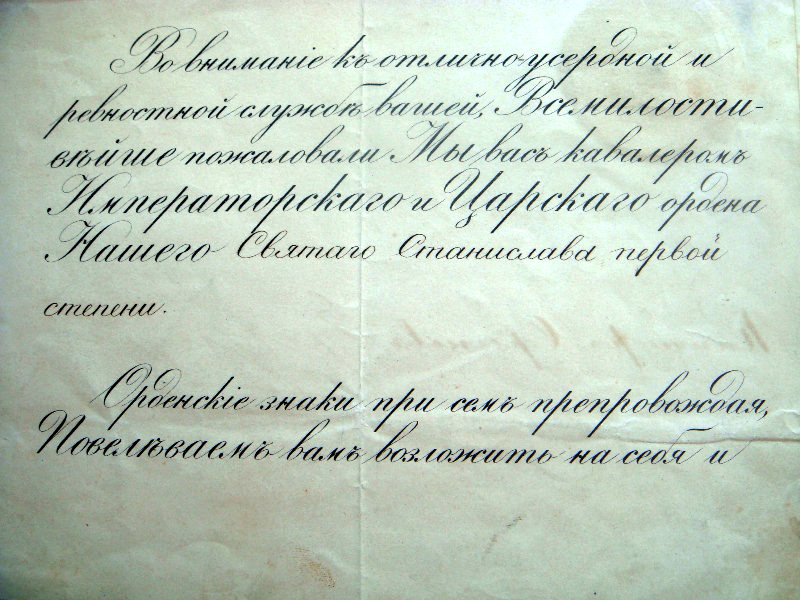 Во вниманіе къ отлично-усердной и
ревностной службѣ вашей, Всемилости-
вѣйше пожаловали Мы васъ кавалеромъ
Императорскаго и Царскаго ордена
Нашего Святаго Станислава первой
степени.
Орденскіе знаки при семъ препровождая,
Повелѣваемъ вамъ возложить на себя и